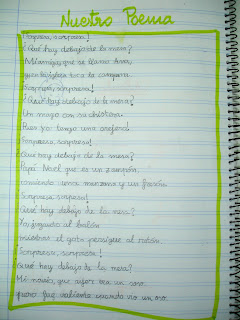 Nuestro Poema
Sorpresa, sorpresa!
¿Qué hay debajo de la mesa?
Mi amiga que se llama Ana,
que toca la campana.
Sorpresa, sorpresa!
¿Qué hay debajo de la mesa?
Un mago con su chistera.
Pues yo tengo una
Sorpresa, sorpresa!
¿Qué hay debajo de la mesa?
Papá Noel, que es un
comiendo una manzana y un
Sorpresa, sorpresa!
¿Qué hay debajo de la mesa?
Yo jugando al balón
mientras el gato persigue al ratón.
Sorpresa, sorpresa!
¿Qué hay debajo de la mesa?
Mi novio, que ayer era un oso
pero fue valiente cuando vio un oso.